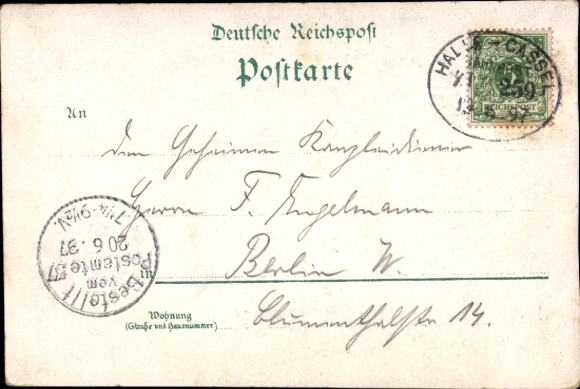 Deutsche Reichspost
Postkarte
HALLE - CASSEL
259
REICHSPOST
6 97
An
den Geheimen Kanzleidiener
Herrn F. Engelmann
in Berlin W.
Wohnung
(Straße und Hausnummer)
Blumenthalstr 14.
Bestellt
vom
Postamte 57
20 6. 97
7¼-9½N.